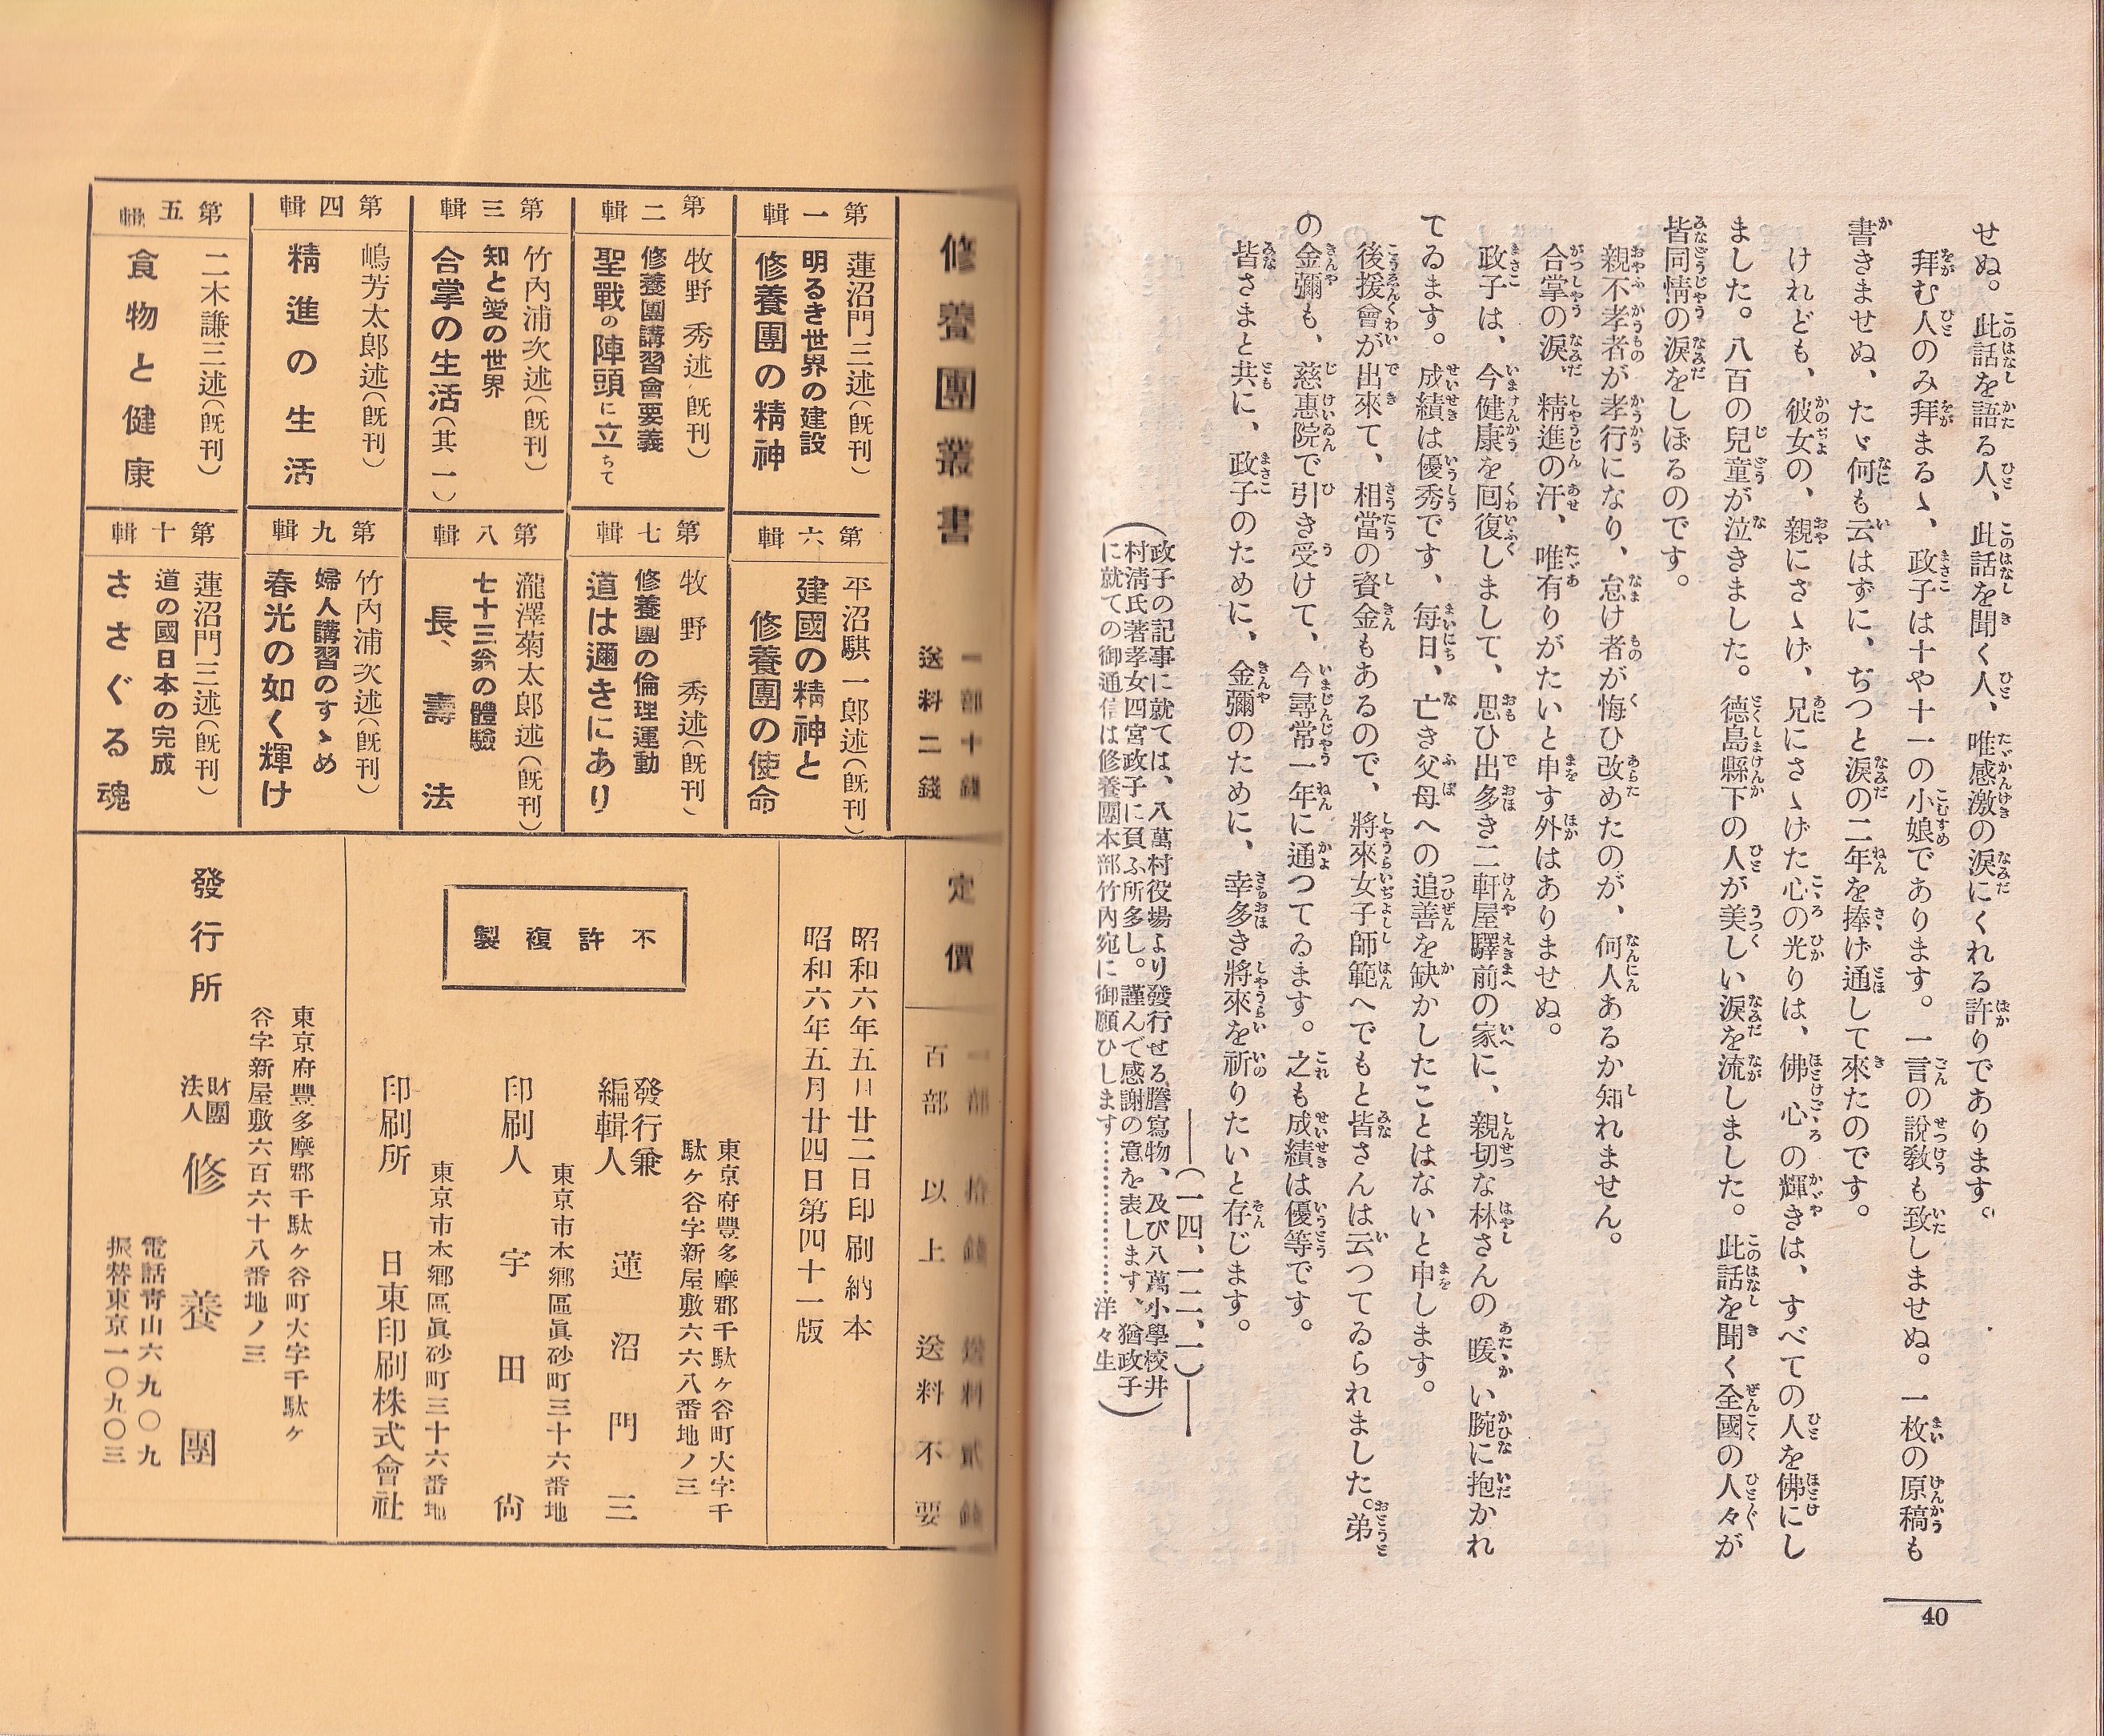 せぬ。此話を語る人、此話を聞く人、唯感激の涙にくれる許りであります。
拜む人のみ拜まるゝ、政子は十や十一の小娘であります。一言の說敎も致しませぬ。一枚の原稿も
書きませぬ、たゞ何も云はずに、ぢつと涙の二年を捧げ通して來たのです。
けれども、彼女の、親にさゝげ、兄にさゝげた心の光りは、佛心の輝きは、すべての人を佛にし
ました。八百の兒童が泣きました。德島縣下の人が美しい涙を流しました。此話を聞く全國の人々が
皆同情の涙をしぼるのです。
親不孝者が孝行になり、怠け者が悔ひ改めたのが、何人あるか知れません。
合掌の涙、精進の汗、唯有りがたいと申す外はありませぬ。
政子は、今健康を回復しまして、思ひ出多き二軒屋驛前の家に、親切な林さんの暖い腕に抱かれ
てゐます。成績は優秀です、每日、亡き父母への追善を缺かしたことはないと申します。
後援會が出來て、相當の資金もあるので、將來女子師範へでもと皆さんは云つてゐられました。弟
の金彌も、慈惠院で引き受けて、今尋常一年に通つてゐます。之も成績は優等です。
皆さまと共に、政子のために、金彌のために、幸多き將來を祈りたいと存じます。
――(一四、一二、一)――
(政子の記事に就ては、八萬村役場より發行せる謄寫物、及び八萬小學校井
村淸氏著孝女四宮政子に負ふ所多し。謹んで感謝の意を表します、猶政子
に就ての御通信は修養團本部竹內宛に御願ひします…………洋々生)
40
修養團叢書
一部十錢
送料二錢
第一輯
蓮沼門三述(旣刊)
明るき世界の建設
修養團の精神
第二輯
牧野秀述(旣刊)
修養團講習會要義
聖戰の陣頭に立ちて
第三輯
竹內浦次述(旣刊)
知と愛の世界
合掌の生活(其一)
第四輯
嶋芳太郎述(旣刊)
精進の生活
第五輯
二木謙三述(旣刊)
食物と健康
第六輯
平沼騏一郎述(旣刊)
建國の精神と
修養團の使命
第七輯
牧野秀述(旣刊)
修養團の倫理運動
道は邇きにあり
第八輯
瀧澤菊太郎述(旣刊)
七十三翁の體驗
長壽法
第九輯
竹內浦次述(旣刊)
婦人講習のすゝめ
春光の如く輝け
第十輯
蓮沼門三述(旣刊)
道の國日本の完成
ささぐる魂
定價
一部 拾錢 送料貳錢
百部以上送料不要
昭和六年五月廿二日印刷納本
昭和六年五月廿四日第四十一版
東京府豐多摩郡千駄ヶ谷町大字千
駄ヶ谷字新屋敷六六八番地ノ三
發行兼
編輯人
蓮沼門三
東京市本鄕區眞砂町三十六番地
印刷人 宇田尙
東京市本鄕區眞砂町三十六番地
印刷所 日東印刷株式會社
不許複製
東京府豐多摩郡千駄ヶ谷町大字千駄ヶ
谷字新屋敷六百六十八番地ノ三
發行所
財團
法人
修養團
電話靑山六九〇九
振替東京一〇九〇三